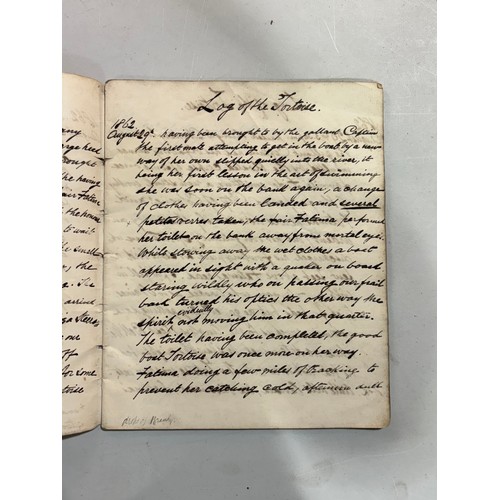 ny
rge heel
rought
having
Fatima
the house
to wait
e smaller
the
The
arrived
our
off
For some
Tortoise
Log of the Tortoise.
1862
August 29th. having been brought to by the gallant Captain
the first mate attempting to get in the boat by a new
way of her own slipped quietly into the river, it
being her first lesson in the art of swimming
she was soon on the bank again, a change
of clothes having been landed and several
petits verres taken, the fair Fatima performed
her toilet on the bank away from mortal eyes.
Whilst stowing away the wet clothes a boat
appeared in sight with a quaker on board
staring wildly who on passing our frail
bark turned his optics the other way the
spirit evidently not moving him in that quarter.
The toilet having been completed, the good
boat Tortoise was once more on her way.
Fatima doing a few miles of tracking to
prevent her catching cold, afternoon dull